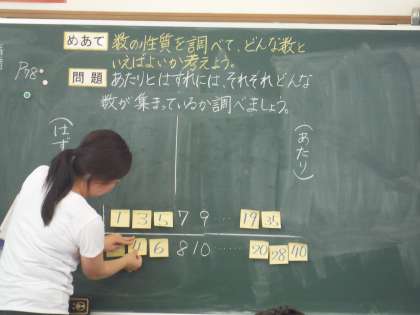 めあて 数の性質を調べて、どんな数と
いえばよいか考えよう。
P98
問題 あたりとはずれには、それぞれどんな
数が集まっているか調べましょう。
(はず
(あたり)
1 3 5 7 9 …… 19 35
4 6 8 10 …… 20 28 40